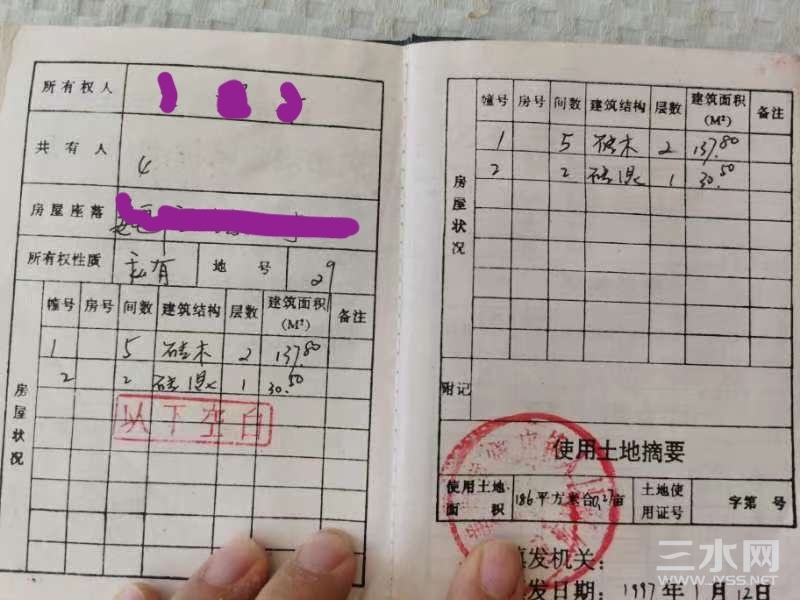 所有权人
共有人
4
房屋座落
所有权性质 私有 地号 29
幢号 房号 间数 建筑结构 层数 建筑面积(M²) 备注
1 5 砖木 2 137.80
2 2 砖混 1 30.50
房屋状况
以下空白
幢号 房号 间数 建筑结构 层数 建筑面积(M²) 备注
1 5 砖木 2 137.80
2 2 砖混 1 30.50
房屋状况
附记
使用土地摘要
使用土地面积 186平方米合0.27亩 土地使用证号 字第 号
填发机关：
发日期：1997年1月12日
三水网
WWW.JYSS.NET